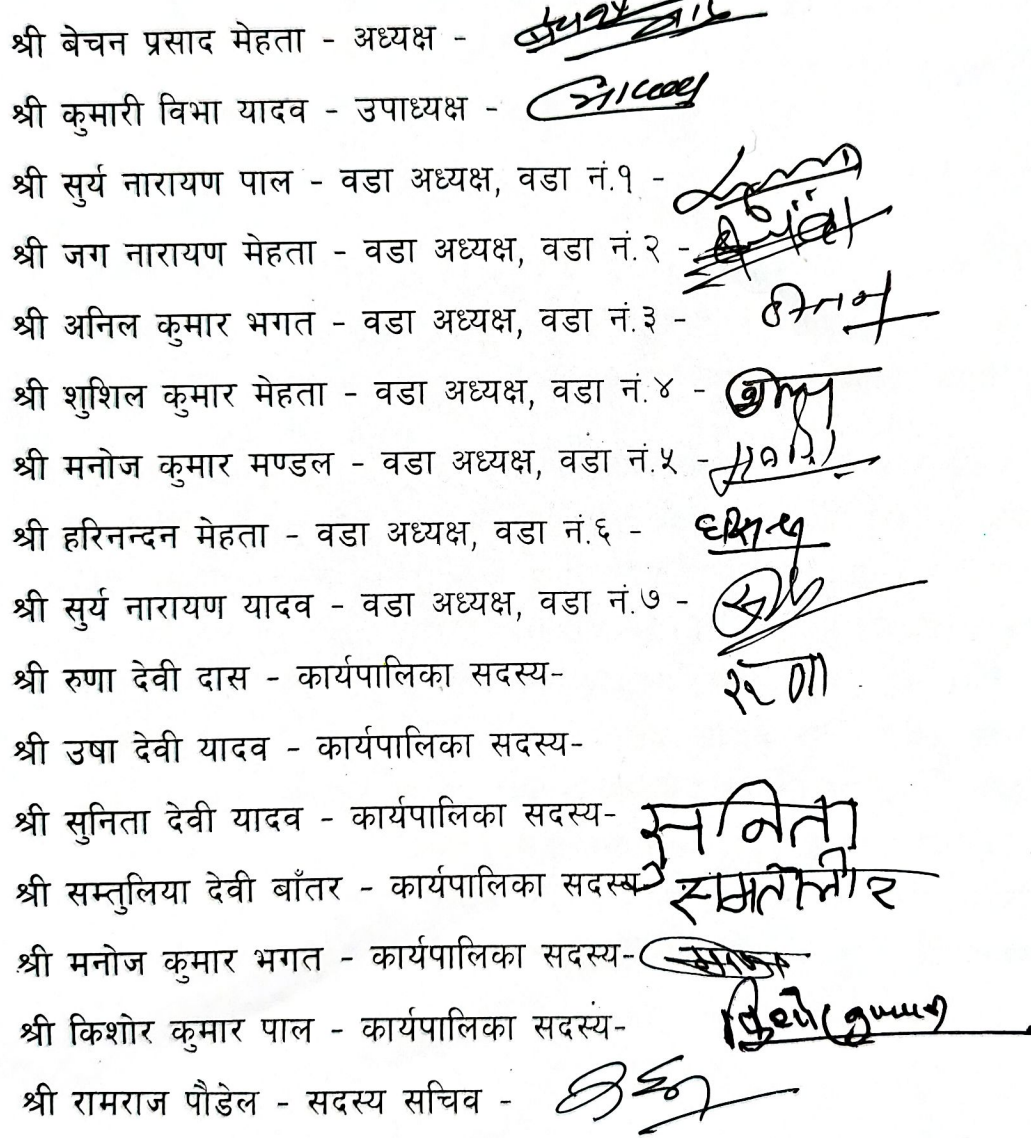 श्री बेचन प्रसाद मेहता - अध्यक्ष -
श्री कुमारी विभा यादव - उपाध्यक्ष -
श्री सुर्य नारायण पाल - वडा अध्यक्ष, वडा नं.१ -
श्री जग नारायण मेहता - वडा अध्यक्ष, वडा नं.२ -
श्री अनिल कुमार भगत - वडा अध्यक्ष, वडा नं.३ -
श्री शुशिल कुमार मेहता - वडा अध्यक्ष, वडा नं.४ -
श्री मनोज कुमार मण्डल - वडा अध्यक्ष, वडा नं.५ -
श्री हरिनन्दन मेहता - वडा अध्यक्ष, वडा नं.६ -
श्री सुर्य नारायण यादव - वडा अध्यक्ष, वडा नं.७ -
श्री रुणा देवी दास - कार्यपालिका सदस्य-
श्री उषा देवी यादव - कार्यपालिका सदस्य-
श्री सुनिता देवी यादव - कार्यपालिका सदस्य- सुनिता
श्री सम्तुलिया देवी बाँतर - कार्यपालिका सदस्य-
श्री मनोज कुमार भगत - कार्यपालिका सदस्य-
श्री किशोर कुमार पाल - कार्यपालिका सदस्य-
श्री रामराज पौडेल - सदस्य सचिव -